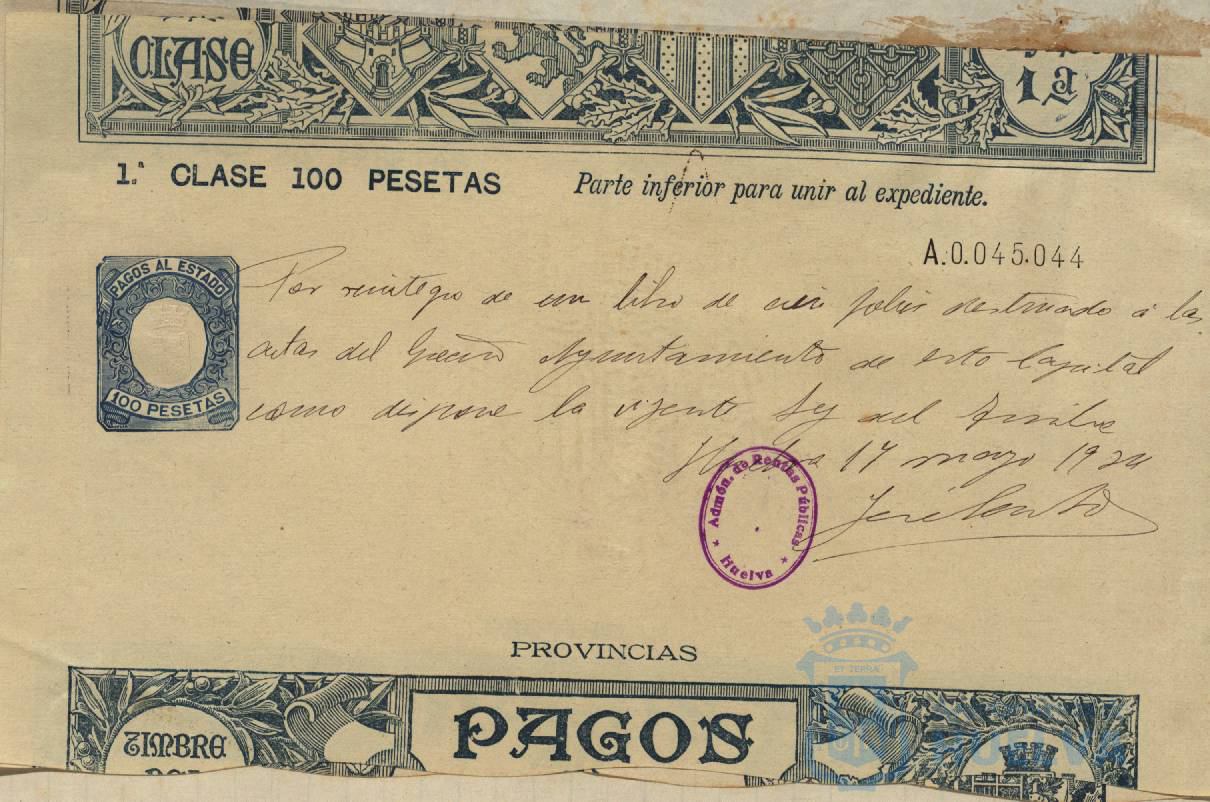 CLASE
1ª
1.ª CLASE 100 PESETAS
Parte inferior para unir al expediente.
A.0.045.044
PAGOS AL ESTADO
100 PESETAS
Por reintegro de un libro de cien folios destinado á las
actas del Excmo Ayuntamiento de esta Capital
como dispone la vigente Ley del Timbre
Huelva 17 mayo 1924
Admón. de Rentas Públicas
Huelva
PROVINCIAS
ET TERRÆ
TIMBRE
PAGOS
HUELVA